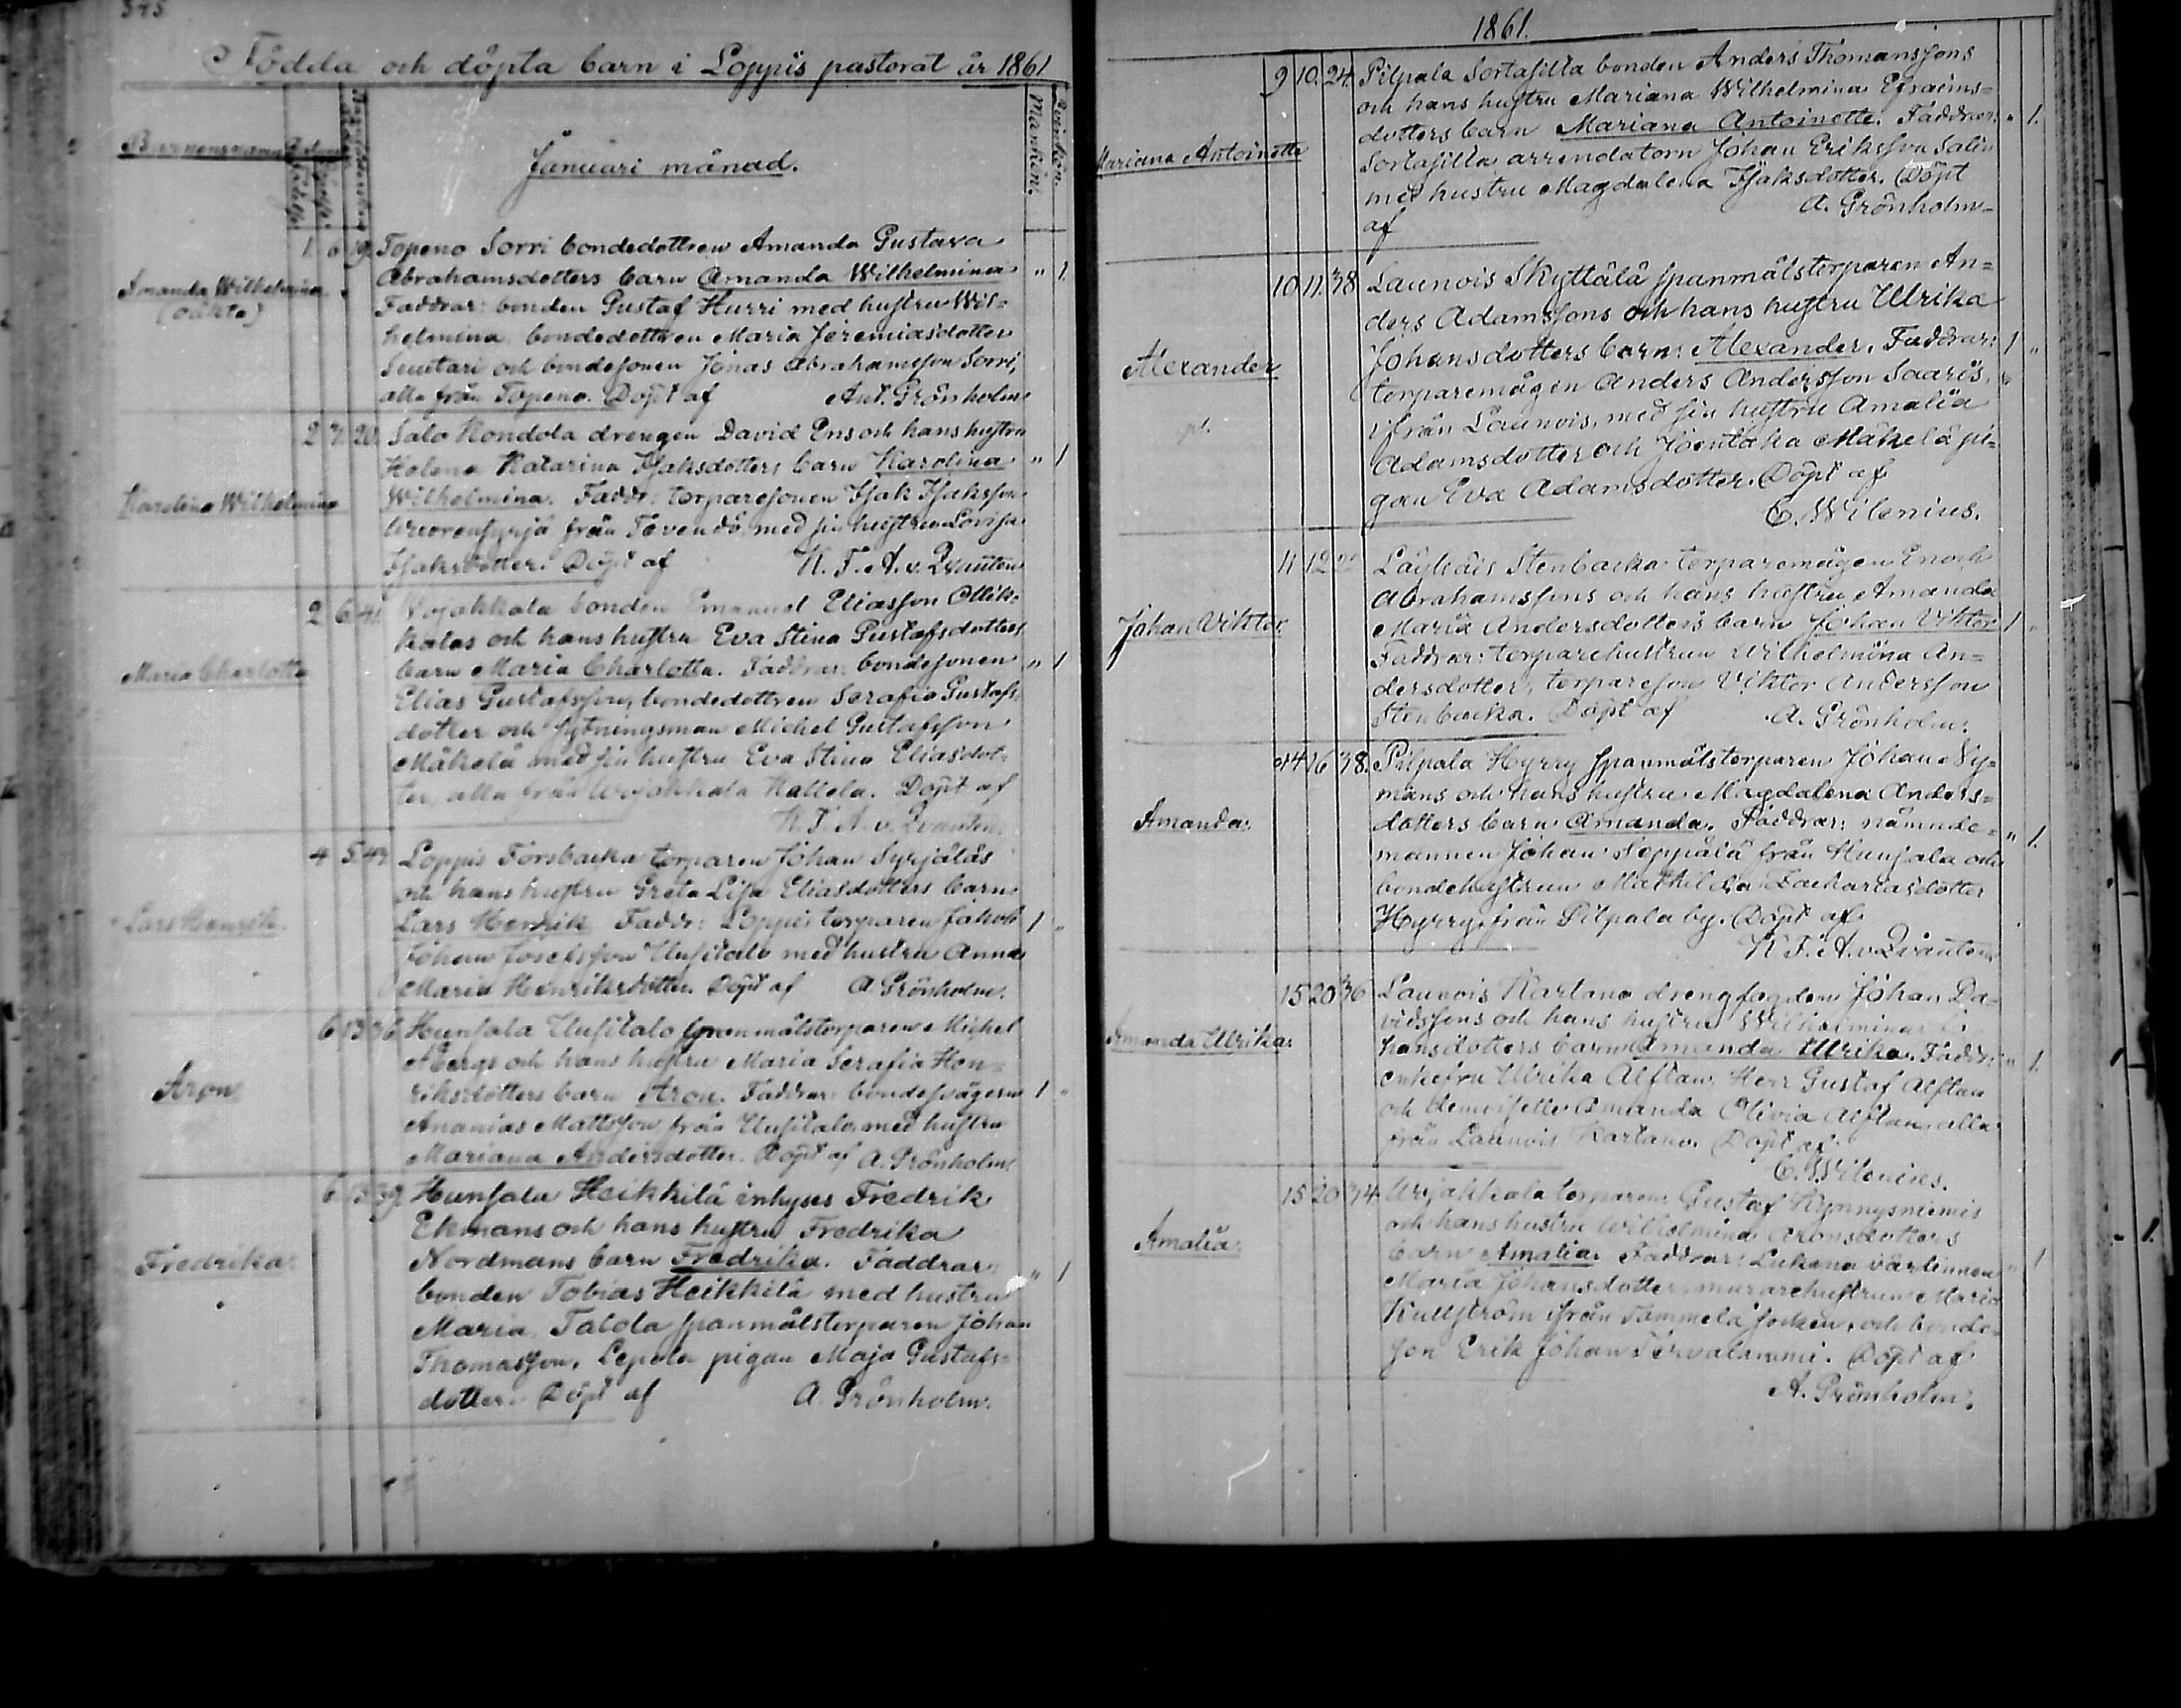 345
Födda och döpta barn i Loppis pastorat år 1861
Barnens namn
Mankön.
Qvinkön.
Januari månad.
Amanda Wilhelmina
(oäkta)
1. 6 19. Topeno Sorri bondedottren Amanda Gustava
Abrahamsdotters barn Amanda Wilhelmina " 1.
Faddrar: bonden Gustaf Hurri med hustru Wil=
helmina, bondedottren Maria Jeremiasdotter
Suutari och bondesonen Jonas Abrahamsson Sorri,
alla från Topeno. Döpt af Ant. Grönholm
Karolina Wilhelmina
2 7. 20. Salo Kondola drengen David Ens och hans hustru
Helena Katarina Isaksdotters barn Karolina " 1
Wilhelmina. Faddr: torparesonen Isak Isaksson
från Tevendö, med sin hustru Lovisa
Isaksdotter. Döpt af K. F. A. v. Qvanten
Maria Charlotta
2 6 41. Wojakkala bonden Emanuel Eliasson Ollik=
kalas och hans hustru Eva Stina Gustafsdotters
barn Maria Charlotta. Faddrar: bondesonen " 1
Elias Gustafsson, bondedottren Serafia Gustafs=
dotter och sytningsman Michel Gustafsson
Mäkelä med sin hustru Eva Stina Eliasdot=
ter, alla från Wojakkala Kallela. Döpt af
K. F. A. v. Qvanten.
Lars Henrik
4 5 43. Loppis Forsbacka torparen Johan Syrjäläs
och hans hustru Greta Lisa Eliasdotters barn
Lars Henrik Faddr: Loppis torparen Jakob 1 "
Johan Josefsson Uusitalo med hustru Anna
Maria Henriksdotter. Döpt af A. Grönholm.
Aron
6 13 36 Hunsala Uusitalo spanmålstorparen Michel
Åbergs och hans hustru Maria Serafia Hen=
riksdotters barn Aron. Faddrar: bondesvågern 1 "
Ananias Mattsson från Uusitalo med hustru
Mariana Andersdotter. Döpt af A. Grönholm
Fredrika
6 13 39. Hunsala Heikkilä inhyses Fredrik
Ekmans och hans hustru Fredrika
Nordmans barn Fredrika. Faddrar: " 1
bonden Tobias Heikkilä med hustru
Maria, Talola spanmålstorparen Johan
Thomasson, Lepola pigan Maja Gustafs=
dotter. Döpt af A. Grönholm.
1861.
Mariana Antoinette
9 10. 24. Pilpala Sortasilta bonden Anders Thomanssons
och hans hustru Mariana Wilhelmina Efraims=
dotters barn Mariana Antoinette. Faddrar: " 1.
Sortasilta arrendatorn Johan Eriksson Salin
med hustru Magdalena Isaksdotter. Döpt
af A. Grönholm
Alexander
10 11. 38 Launois Skyttälä spanmålstorparen An=
ders Adamssons och hans hustru Ulrika
Johansdotters barn: Alexander. Faddrar: 1 "
torparemågen Anders Andersson Saaris,
ifrån Launois, med sin hustru Amalia
Adamsdotter och Joentaka Mäkelä pi=
gan Eva Adamsdotter. Döpt af
C. Wilenius.
Johan Viktor.
11 12 Läyliäis Stenbacka torparemågen Enoch
Abrahamssons och hans hustru Amanda
Maria Andersdotters barn Johan Viktor 1 "
Faddrar: torparehustrun Wilhelmina An=
dersdotter, torpareson Viktor Andersson
Stenbacka. Döpt af A. Grönholm.
Amanda.
14 16 38. Pilpala Hyrry spanmålstorparen Johan Ny=
mans och hans hustru Magdalena Anders=
dotters barn Amanda. Faddrar: nämnde= " 1.
mannen Johan Seppälä från Hunsala och
bondehustrun Mathilda Zachariasdotter
Hyrry, från Pilpala by. Döpt af
K. F. A. v Qvanten
Amanda Ulrika.
15 20 36 Launois Kartano drengfogden Johan Da=
vidssons och hans hustru Wilhelmina
hansdotters barn Amanda Ulrika. Faddr: " 1.
enkefru Ulrika Alftan, Herr Gustaf Alftan
och demoiselle Amanda Olivia Alftan, alla
från Launois Kartano. Döpt af
C. Wilenius.
Amalia.
15 20 34. Wojakkala torparen Gustaf Kynnysniemis
och hans hustru Wilhelmina Aronsdotters
barn Amalia. Faddrar: Lukana värdinnan " 1
Maria Johansdotter, murarehustrun Maria
Kullström ifrån Tammela socken, och bonde=
son Erik Johan Tervalammi. Döpt af
A. Grönholm.